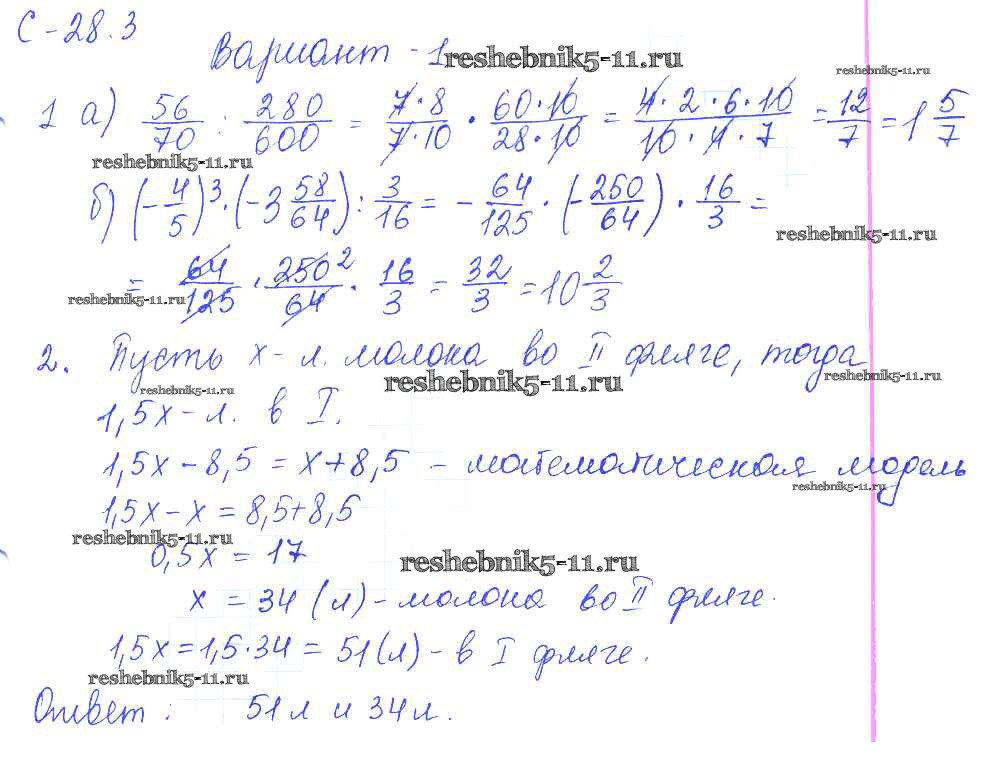 С-28.3
Вариант -1
reshebnik5-11.ru
reshebnik5-11.ru
1 а) 56/70 : 280/600 = 7·8/7·10 · 60·10/28·10 = 4·2·6·10/10·4·7 = 12/7 = 1 5/7
reshebnik5-11.ru
б) (-4/5)³·(-3 58/64) : 3/16 = -64/125 · (-250/64) · 16/3 =
reshebnik5-11.ru
= 64/125 · 250 2/64 · 16/3 = 32/3 = 10 2/3
reshebnik5-11.ru
2. Пусть x - л. молока во II фляге, тогда
reshebnik5-11.ru
reshebnik5-11.ru
reshebnik5-11.ru
1,5x - л. в I.
1,5x - 8,5 = x + 8,5 - математическая модель
reshebnik5-11.ru
1,5x - x = 8,5 + 8,5
reshebnik5-11.ru
0,5x = 17
reshebnik5-11.ru
x = 34 (л) - молока во II фляге.
1,5x = 1,5·34 = 51 (л) - в I фляге.
reshebnik5-11.ru
Ответ: 51 л и 34 л.